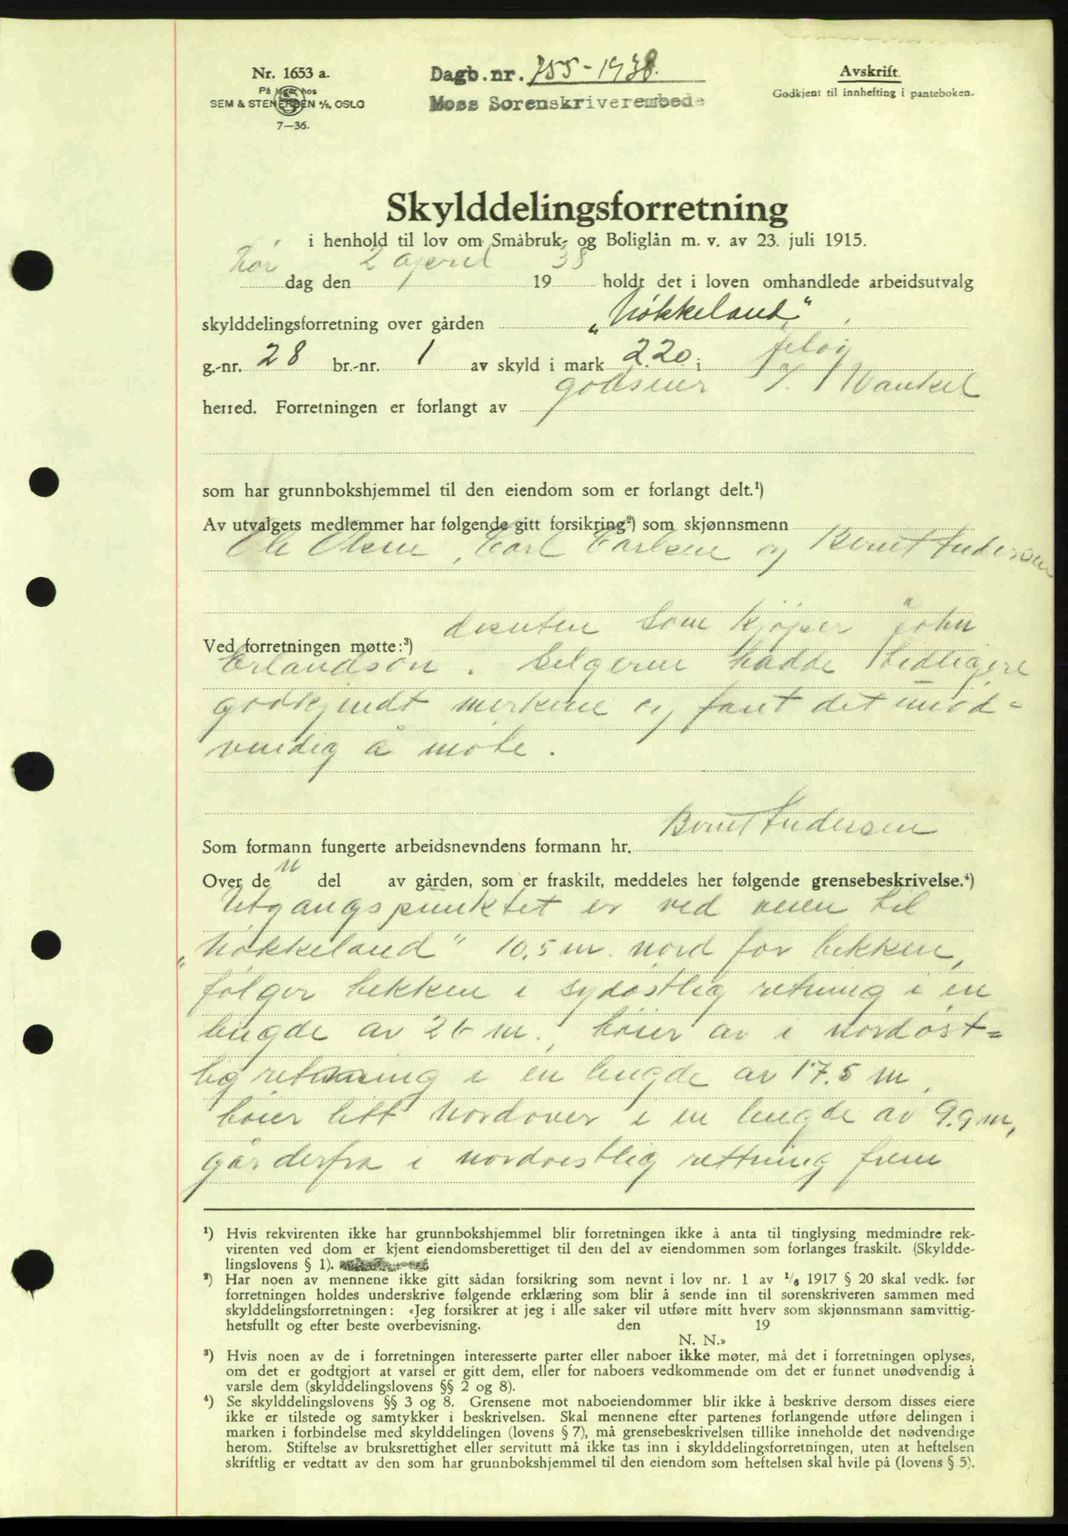 Nr. 1653 a.
På lager hos
SEM & STENERSEN A/S, OSLO
7—36.
Dagb.nr. 755-1938.
Moss Sorenskriverembede
Avskrift.
Godkjent til innhefting i panteboken.
Skylddelingsforretning
i henhold til lov om Småbruk- og Boliglån m. v. av 23. juli 1915.
dag den 2 april 1938 holdt det i loven omhandlede arbeidsutvalg
skylddelingsforretning over gården „Nøkkeland“,
g.-nr. 28 br.-nr. 1 av skyld i mark 2.20 i Jeløy
herred. Forretningen er forlangt av godseier Wankel
som har grunnbokshjemmel til den eiendom som er forlangt delt.¹)
Av utvalgets medlemmer har følgende gitt forsikring²) som skjønnsmenn
Ole Olsen, Carl Carlsen og Bernt Andersen
Ved forretningen møtte:³) desuten som kjøper John
Erlandson. Selgeren hadde tidligere
godkjendt merkene og fant det unød-
vendig å møte.
Som formann fungerte arbeidsnevndens formann hr. Bernt Andersen
Over den del av gården, som er fraskilt, meddeles her følgende grensebeskrivelse.⁴)
Utgangspunktet er ved veien til
„Nøkkeland“ 10,5 m. nord for bekken,
følger bekken i sydøstlig retning i en
lengde av 26 m., bøier av i nordøst=
lig retning i en lengde av 17.5 m,
bøier litt nordover i en lengde av 9.9 m,
går derfra i nordvestlig rettning frem
¹) Hvis rekvirenten ikke har grunnbokshjemmel blir forretningen ikke å anta til tinglysing medmindre rek-
virenten ved dom er kjent eiendomsberettiget til den del av eiendommen som forlanges fraskilt. (Skyldde-
lingslovens § 1).
²) Har noen av mennene ikke gitt sådan forsikring som nevnt i lov nr. 1 av 1/6 1917 § 20 skal vedk. før
forretningen holdes underskrive følgende erklæring som blir å sende inn til sorenskriveren sammen med
skylddelingsforretningen: «Jeg forsikrer at jeg i alle saker vil utføre mitt hverv som skjønnsmann samvittig-
hetsfullt og efter beste overbevisning. den 19
N. N.»
³) Hvis noen av de i forretningen interesserte parter eller naboer ikke møter, må det i forretningen oplyses,
om det er godtgjort at varsel er gitt dem, eller for naboers vedkommende om det er funnet unødvendig å
varsle dem (skylddelingslovens §§ 2 og 8).
⁴) Se skylddelingslovens §§ 3 og 8. Grensene mot naboeiendommer blir ikke å beskrive dersom disses eiere
ikke er tilstede og samtykker i beskrivelsen. Skal mennene efter partenes forlangende utføre delingen i
marken i forbindelse med skylddelingen (lovens § 7), må grensebeskrivelsen tillike inneholde det nødvendige
herom. Stiftelse av bruksrettighet eller servitutt må ikke tas inn i skylddelingsforretningen, uten at heftelsen
skriftlig er vedtatt av den som har grunnbokshjemmel til den eiendom som heftelsen skal hvile på (lovens § 5).